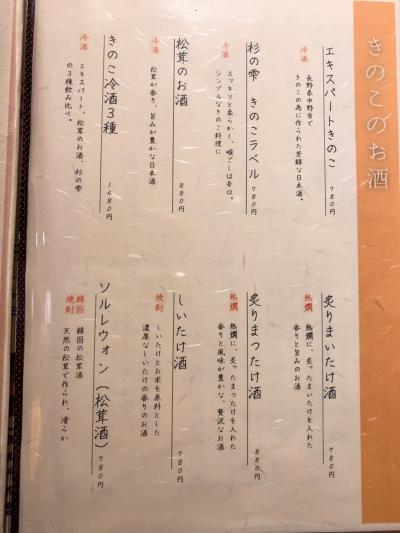 きのこのお酒
エキスパートきのこ 780円
冷酒
長野県中野市で
きのこの為に作られた芳醇な日本酒。
杉の雫 きのこラベル 780円
冷酒
スッキリと柔らかく、喉ごしは辛口。
シンプルなきのこ料理に
松茸のお酒 880円
冷酒
松茸が香り、旨みが豊かな日本酒
きのこ冷酒3種 1480円
冷酒
エキスパート、松茸のお酒、杉の雫
の3種飲み比べ。
炙りまいたけ酒 780円
熱燗
熱燗に、炙ったまいたけを入れた
香りと旨みのお酒
炙りまつたけ酒 880円
熱燗
熱燗に、炙ったまつたけを入れた
香りと風味が豊かな、贅沢なお酒
しいたけ酒 780円
焼酎
しいたけとお米を原料とした
濃厚なしいたけの香りのお酒
ソルレウォン(松茸酒) 780円
韓国
焼酎
韓国の松茸酒
天然の松茸で作られ、滑らか